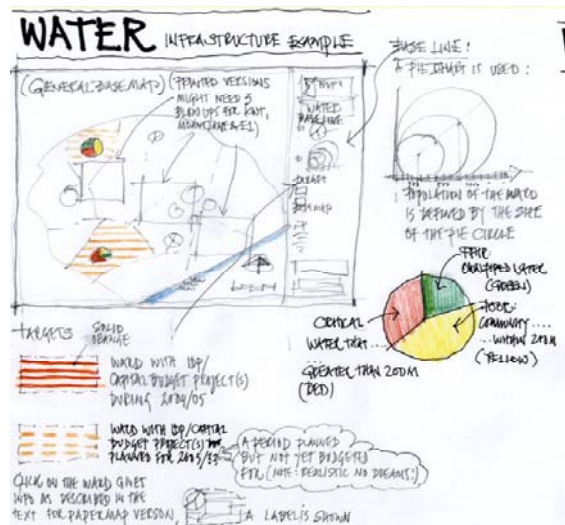 WATER INFRASTRUCTURE EXAMPLE
(GENERAL BASEMAP)
(PRINTED VERSIONS
MIGHT NEED 3
BLOW UPS FOR KNT,
WATER
BASELINE
TARGET
BASEMAP
BASE LINE:
A PIE CHART IS USED:
POPULATION OF THE WARD
IS DEFINED BY THE SIZE
OF THE PIE CIRCLE
(GREEN)
POOR:
COMMUNITY ....
... WITHIN 200M
(YELLOW)
CRITICAL
WATER THAT ...
...
GREATER THAN 200M
(RED)
TARGETS
SOLID
ORANGE
WARD WITH IDP/
CAPITAL BUDGET PROJECT(S)
DURING 2004/05
WARD WITH IDP/CAPITAL
BUDGET PROJECT(S)
PLANNED FOR 2005/
(A PERIOD PLANNED
BUT NOT YET BUDGETED
FOR (NOTE: REALISTIC NO DREAMS!)
CLICK ON THE WARD GIVES
INFO AS DESCRIBED IN THE
TEXT FOR PAPERMAP VERSION,
A LABEL IS SHOWN